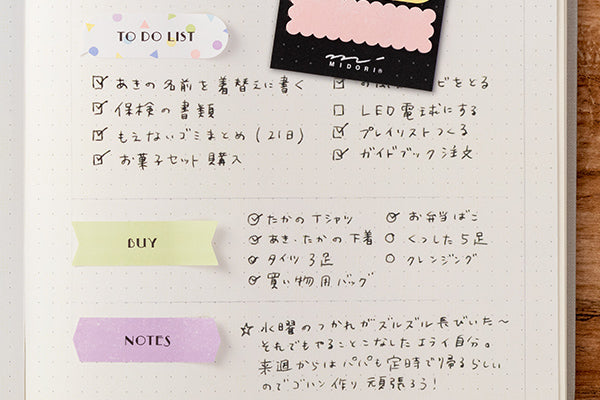 TO DO LIST
MIDORI®
あきの名前を着替えに書く
保検の書類
もえないゴミまとめ (21日)
お菓子セット購入
ビをとる
LED電球にする
プレイリストつくる
ガイドブック注文
BUY
たかのTシャツ
あき・たかの下着
タイツ 3足
買い物用バッグ
お弁当ばこ
くつした5足
クレンジング
NOTES
☆ 水曜のつかれがズルズル長びいた〜
それでもやることこなしたエライ自分。
来週からはパパも定時で帰るらしい
のでゴハン作り頑張ろう!